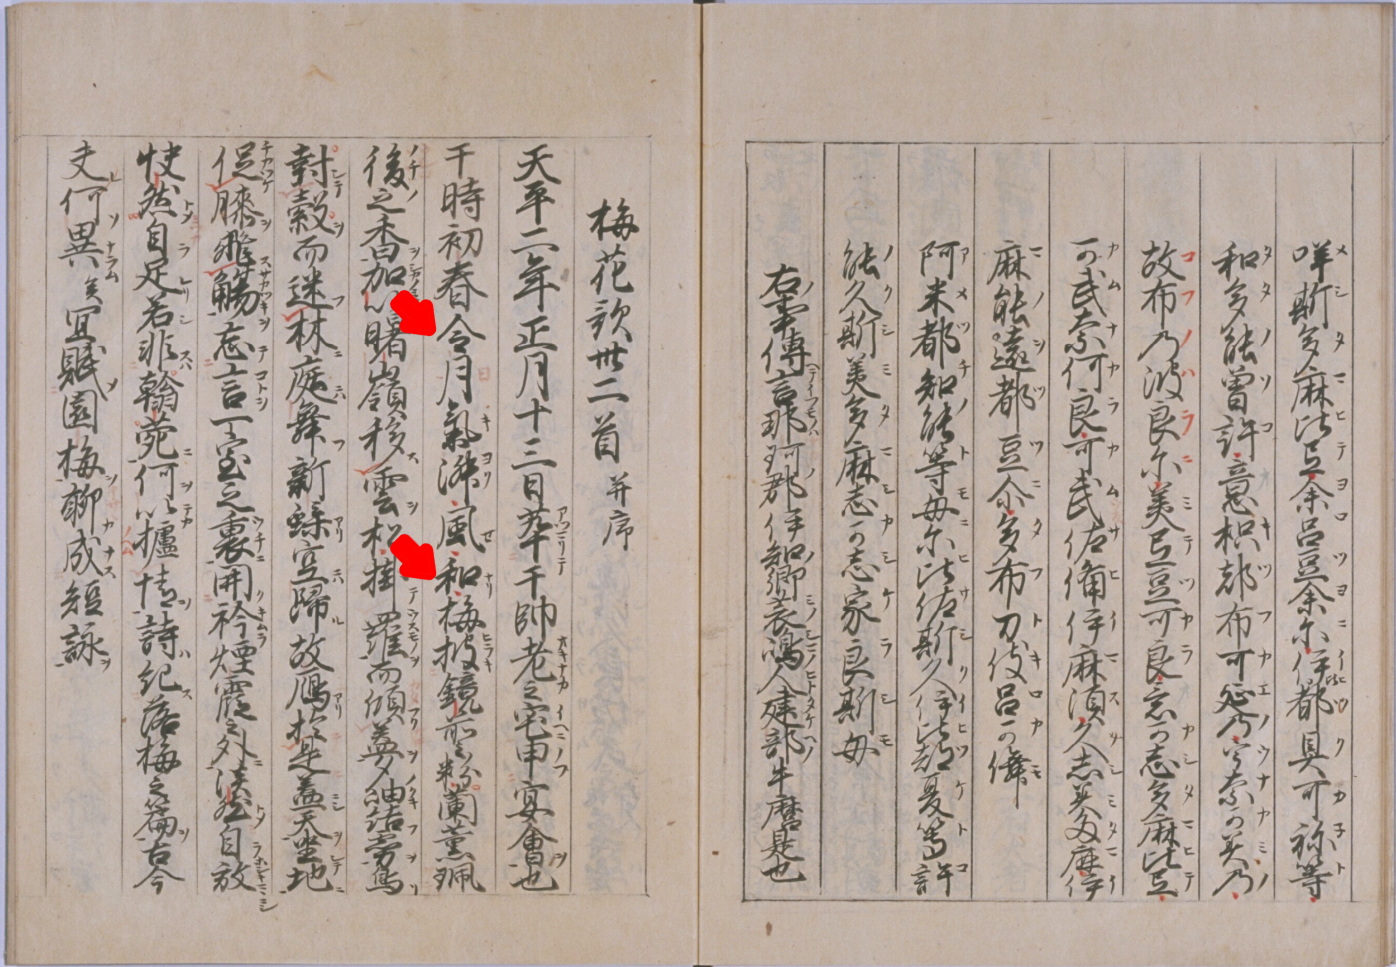 咩斯多麻比弖余呂豆余尓伊比都具可祢等
和多能曽許意枳都布可延乃宇奈可美乃
故布乃波良尓美弖豆可良意可志多麻比弖
可武奈何良可武佐備伊麻須久志美多麻伊
麻能遠都豆尓多布刀伎呂可儛
阿米都知能等毋尓比佐斯久伊比都夏等許
能久斯美多麻志可志家良斯毋
右事傳言那珂郡伊知郷蓑嶋人建部牛麿是也
梅花歌卅二首 并序
天平二年正月十三日萃于帥老之宅申宴會也
于時初春令月氣淑風和梅披鏡前之粉蘭薫珮
後之香加以曙嶺移雲松掛羅而傾盖夕岫結霧鳥
封縠而迷林庭舞新蝶空歸故鴈於是盖天坐地
促膝飛觴忘言一室之裏開衿煙霞之外淡然自放
快然自足若非翰苑何以攄情詩紀落梅之篇古今
夫何異矣宜賦園梅聊成短詠